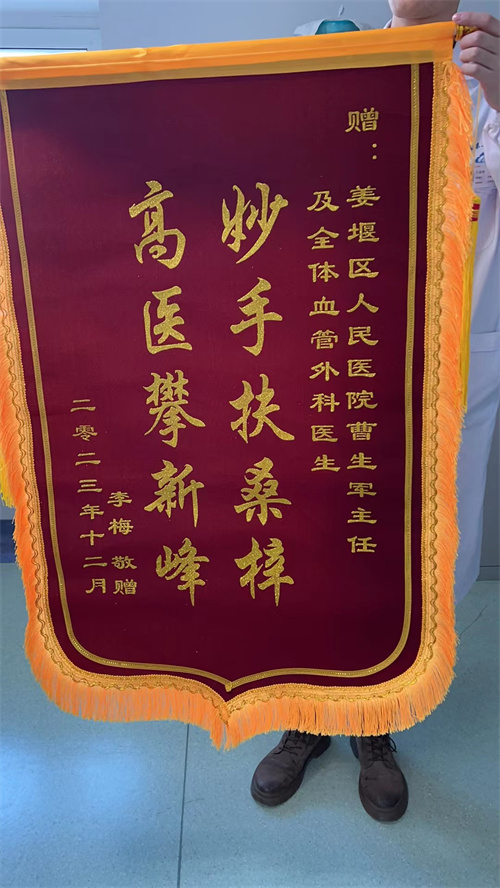 赠：姜堰区人民医院曹生军主任
及全体血管外科医生
妙手扶桑梓
高医攀新峰
李梅 敬赠
二零二三年十二月